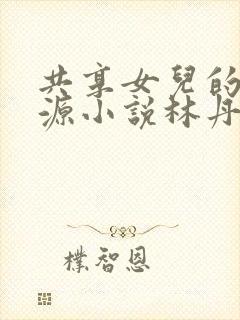 共享女兒的
源小說林丹
樸智恩